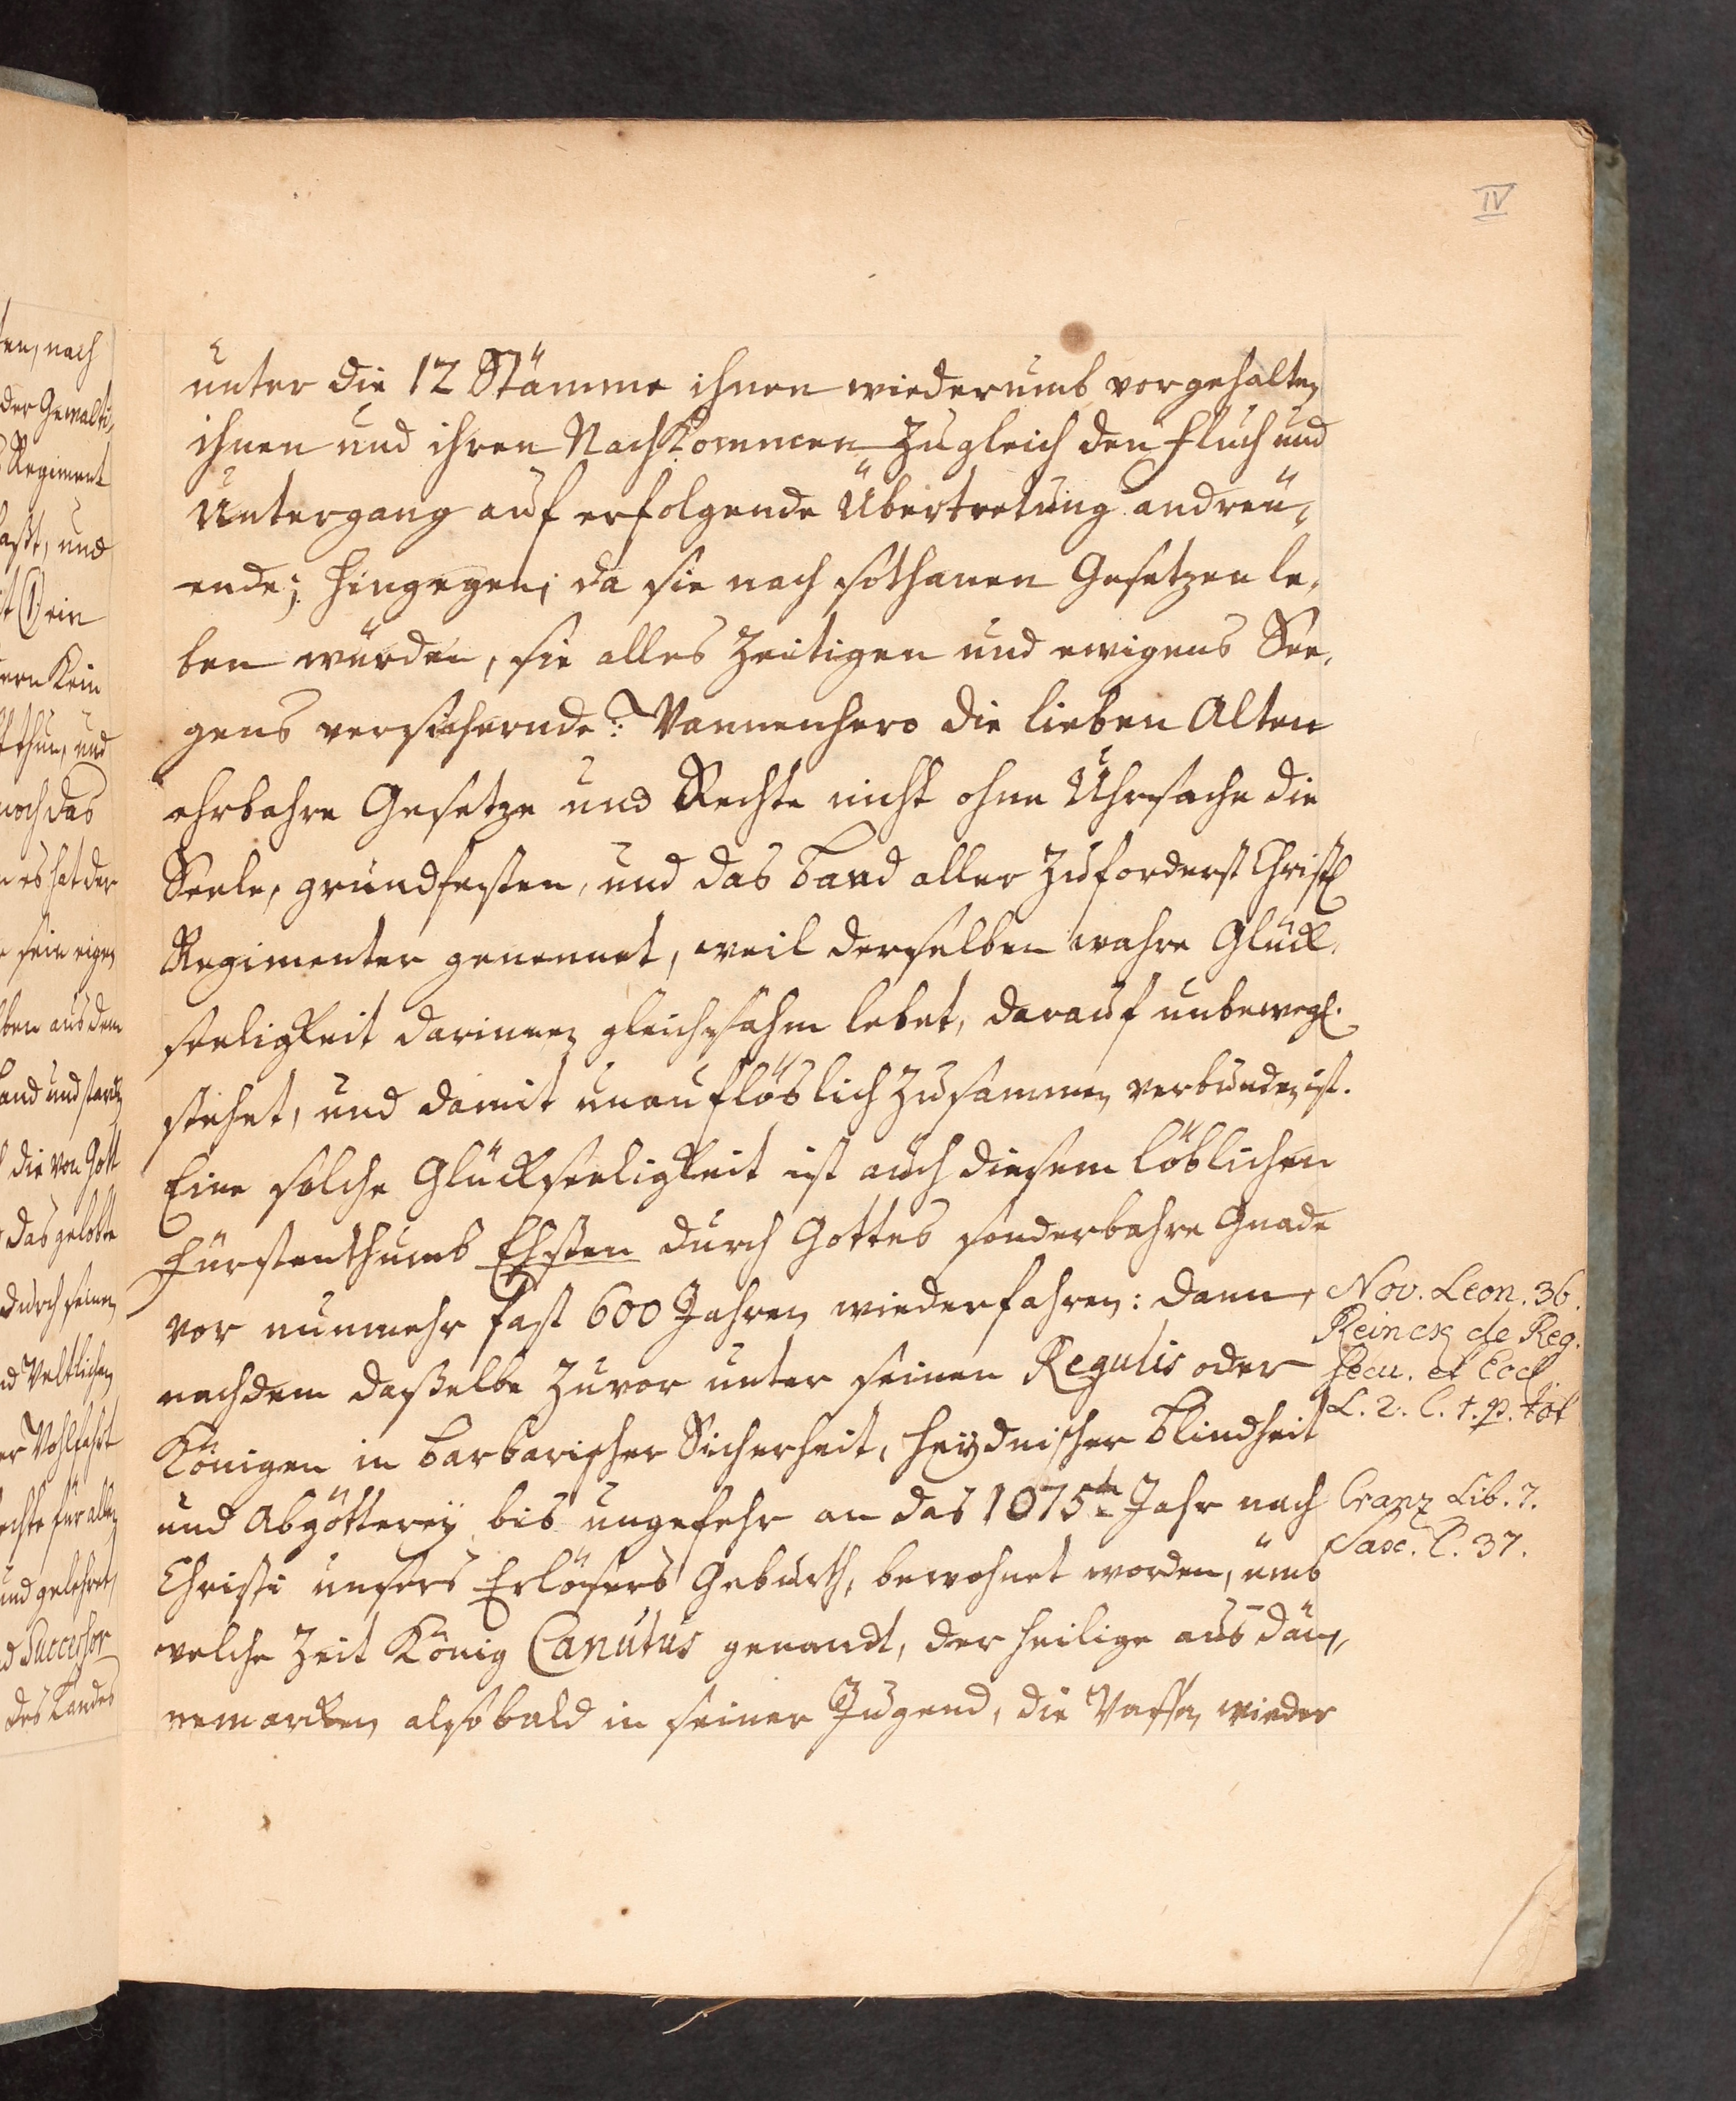 IV
unter die 12 Stämme ihnen wiederumb vorgehalten
ihnen und ihren Nachkommen zugleich den Fluch und
Untergang auf erfolgende Übertretung andreü,
ende; hingegen, da sie nach sothanen Gesetzen le,
ben würden, sie alles Zeitigen und ewigens See,
gens versichernde: Wannenhero die lieben Alten
ehrbahre Gesetze und Rechte nicht ohne Uhrsache die
Seele, grundfesten, und das Band aller zuforderst Christl
Regimenter genennet, weil derselben wahre Glück,
seeligkeit darinnen gleichsahm lebet, darauf unbewegl.
stehet, und damit unauflöslich zusammen verbunden ist.
Eine solche Glückseeligkeit ist auch diesem löblichen
Fürstenthumb Ehsten durch Gottes sonderbahre Gnade
vor nunmehr fast 600 Jahren wiederfahren: dann,
nachdem daßelbe zuvor unter seinen Regulis oder
Königen in barbarischer Sicherheit, heydnischer Blindheit
und Abgötterey bis ungefehr an das 1075te Jahr nach
Christi unsers Erlösers Geburth, bewohnet worden, umb
welche Zeit König Canutus genandt, der heilige aus Dän,
nemarcken alsobald in seiner Jugend, die Waffen wieder
Nov. Leon. 36.
Reinck de Reg.
secu. et Eccl.
L. 2. C. 1. p. tot
Cranz Lib. 7.
Sax. C. 37.